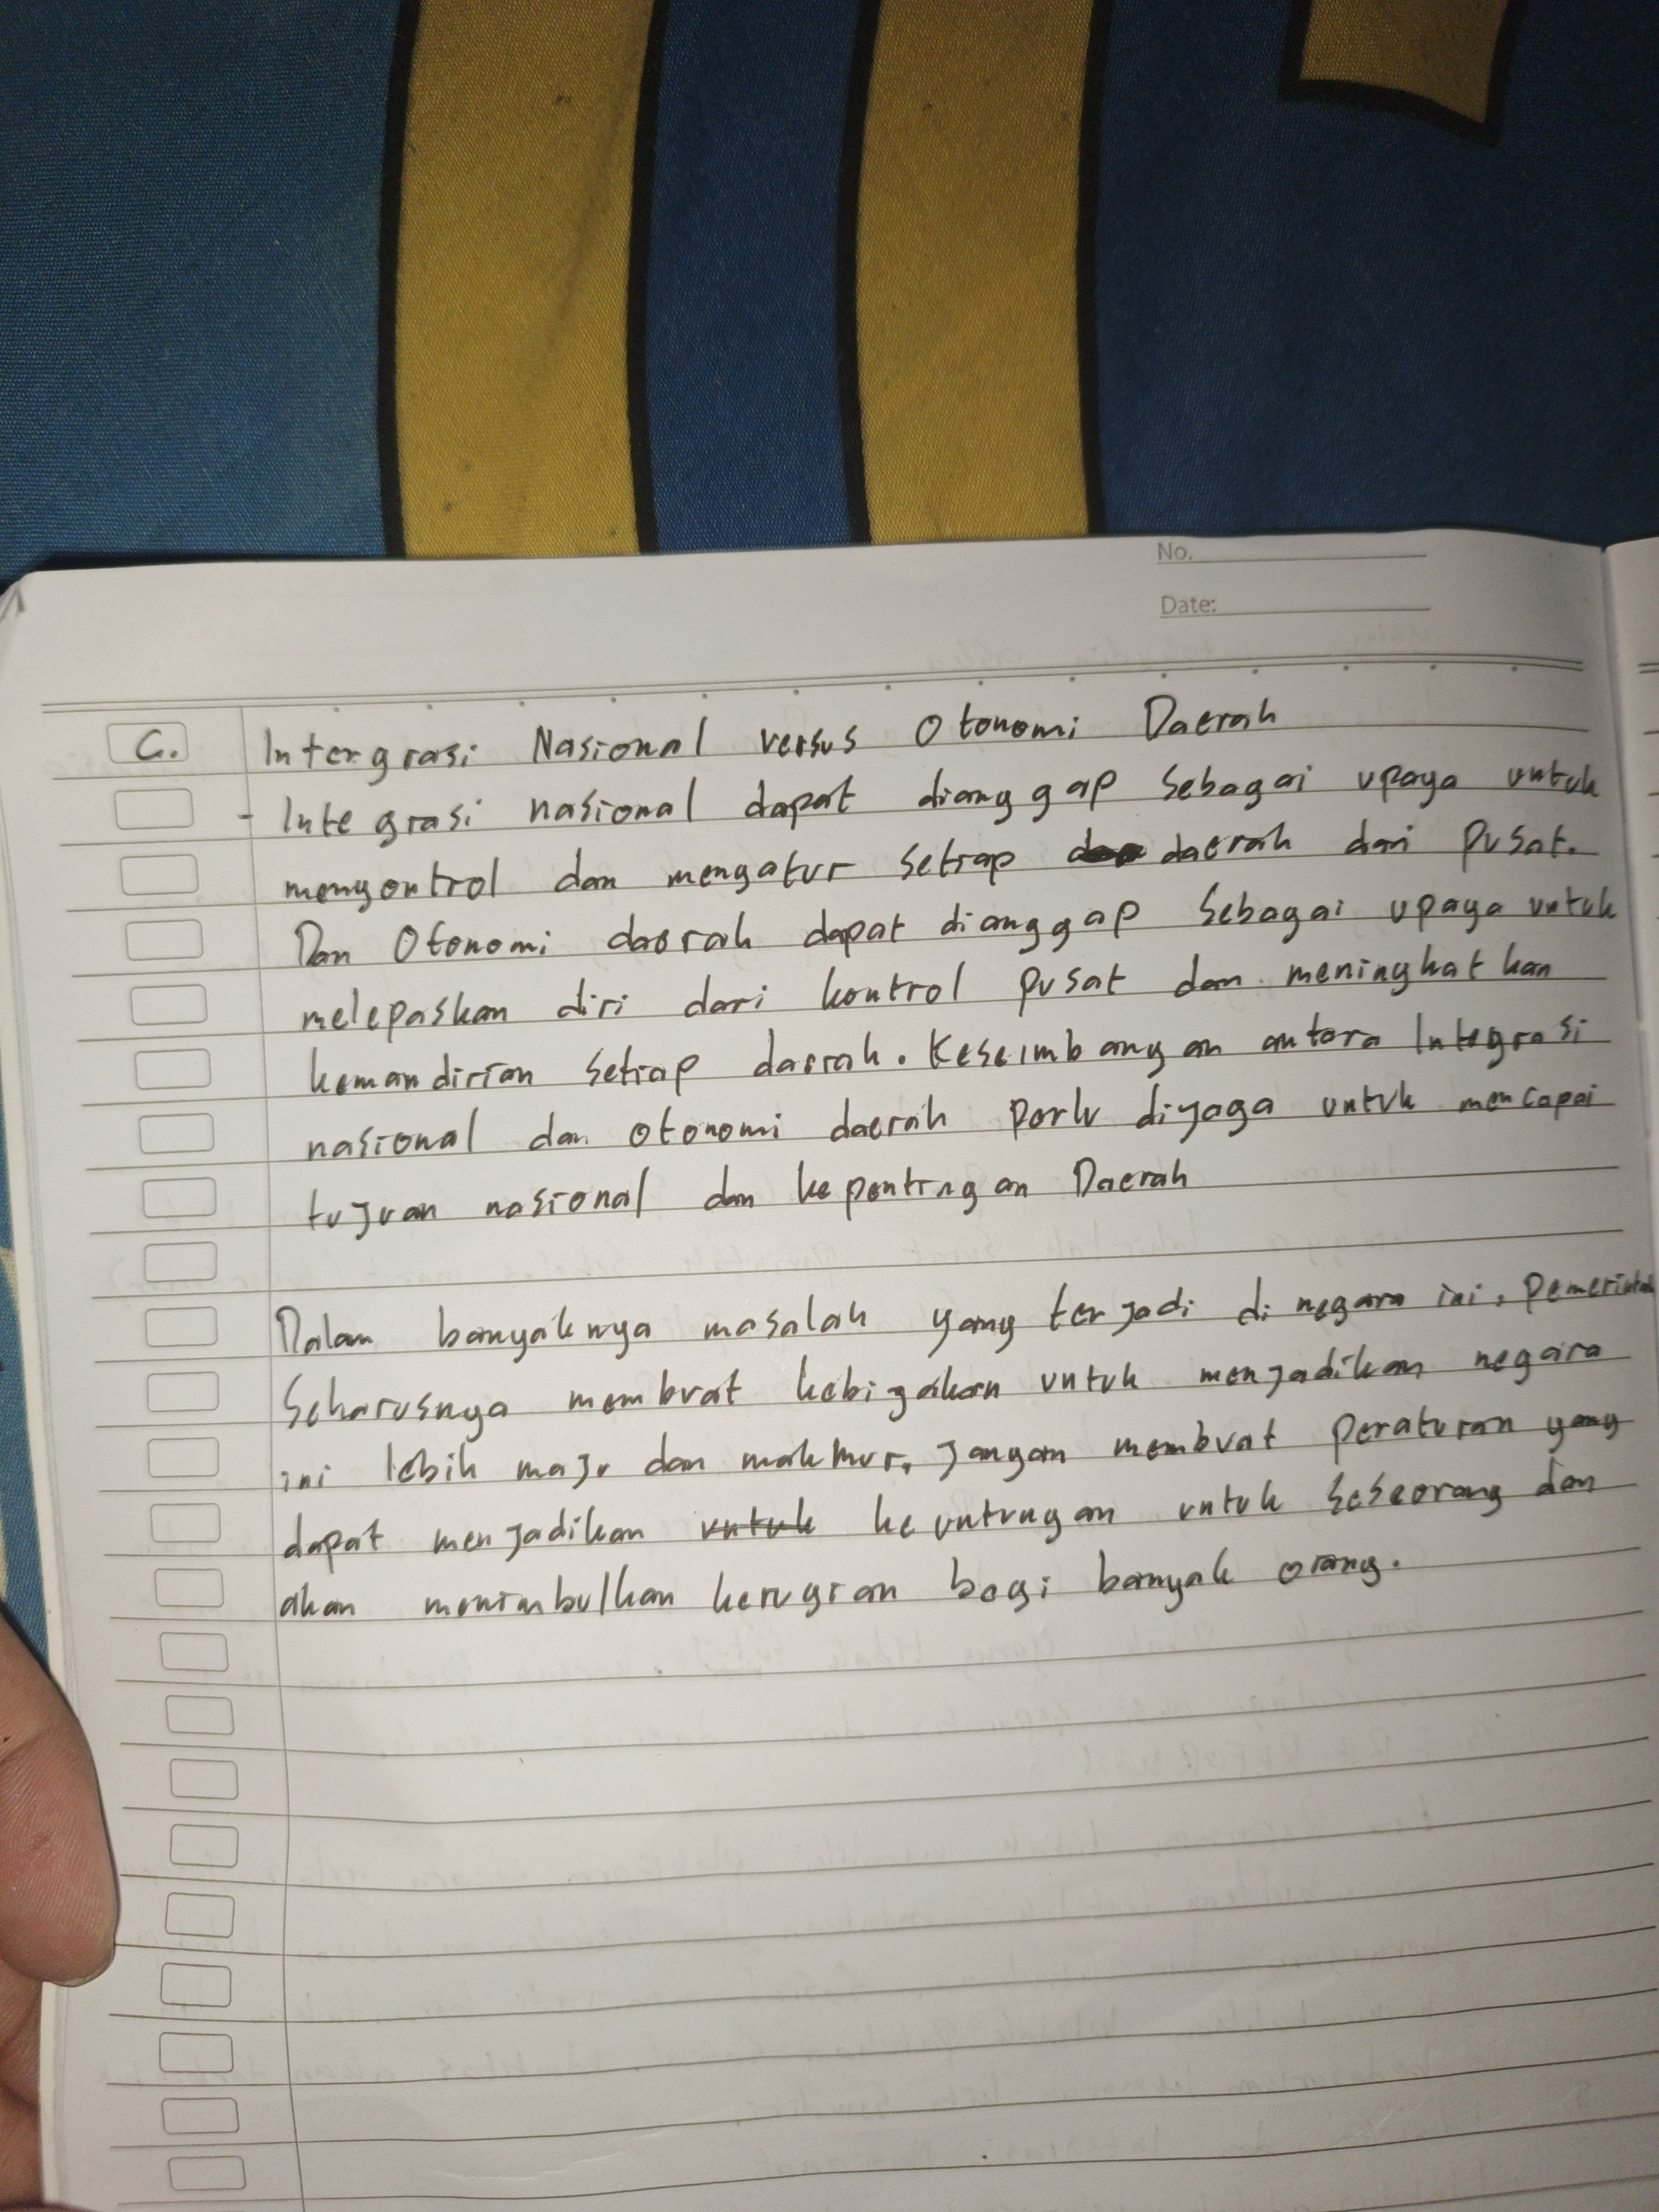 No.
Date:
C. Intergrasi Nasional versus Otonomi Daerah
- Integrasi nasional dapat dianggap sebagai upaya untuk
mengontrol dan mengatur setiap daerah dari pusat.
Dan Otonomi daerah dapat dianggap sebagai upaya untuk
melepaskan diri dari kontrol pusat dan meningkatkan
kemandirian setiap daerah. Keseimbangan antara Integrasi
nasional dan otonomi daerah perlu dijaga untuk mencapai
tujuan nasional dan kepentingan Daerah
Dalam banyaknya masalah yang terjadi di negara ini, pemerintah
Seharusnya membuat kebijakan untuk menjadikan negara
ini lebih maju dan makmur, jangan membuat peraturan yang
dapat menjadikan untuk keuntungan untuk seseorang dan
akan menimbulkan kerugian bagi banyak orang.